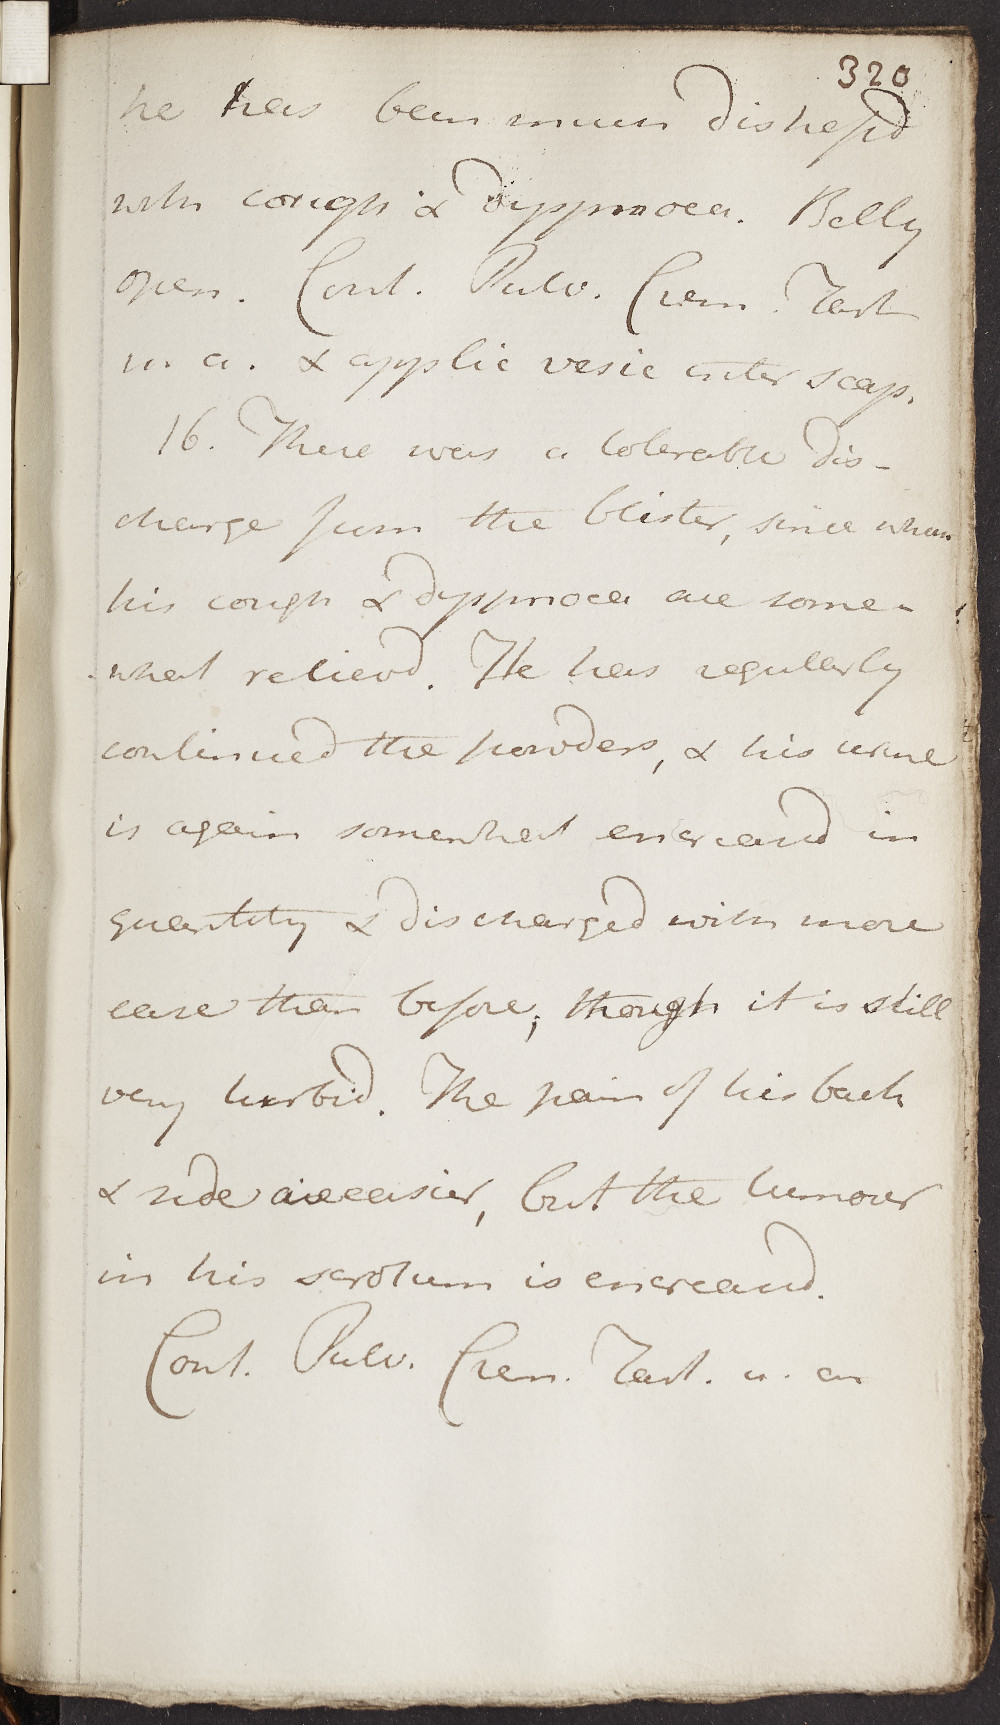 320
he has been much distressd
with cough & dyspnoea. Belly
open. Cont. Pulv. Crem. Tart
u. a. & applic vesic inter scap.
16. There was a tolerable dis-
charge from the blister, since when
his cough & dyspnoea are some-
what relievd. He has regularly
continued the powders, & his urine
is again somewhat encreasd in
quantity & discharged with more
ease than before; though it is still
very turbid. The pain of his back
& side are easier, but the tumour
in his scrotum is encreasd.
Cont. Pulv. Crem. Tart. u. a